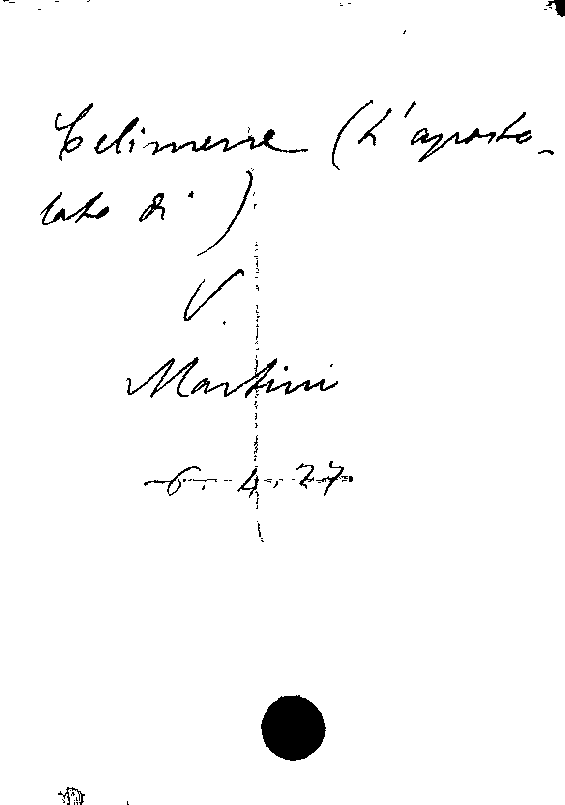 Celimene (L'aposto-
lato di)
V.
Martini
6. 4. 27